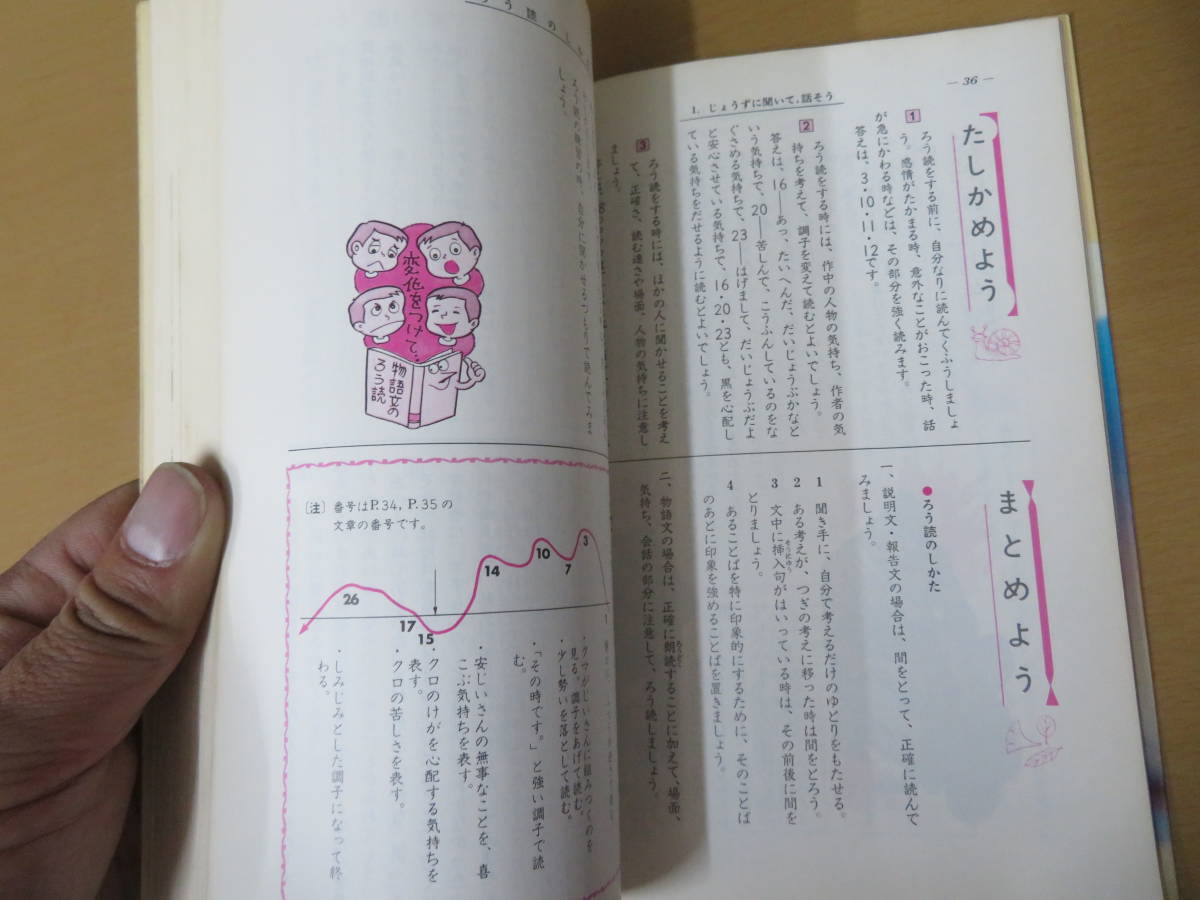 — 36 —
1. じょうずに聞いて，話そう
たしかめよう
1
ろう読をする前に、自分なりに読んでくふうしましょ
う。感情がたかまる時、意外なことがおこった時、話
が急にかわる時などは、その部分を強く読みます。
答えは、3・10・11・12です。
2
ろう読をする時には、作中の人物の気持ち、作者の気
持ちを考えて、調子を変えて読むとよいでしょう。
答えは、16——あっ、たいへんだ、だいじょうぶかなと
いう気持ちで、20——苦しんで、こうふんしているのをな
ぐさめる気持ちで、23——はげまして、だいじょうぶだよ
と安心させている気持ちで、16・20・23とも、黒を心配し
ている気持ちをだせるように読むとよいでしょう。
3
ろう読をする時には、ほかの人に聞かせることを考え
て、正確さ、読む速さや場面、人物の気持ちに注意し
ましょう。
まとめよう
●ろう読のしかた
一、説明文・報告文の場合は、間をとって、正確に読んで
みましょう。
1 聞き手に、自分で考えるだけのゆとりをもたせる。
2 ある考えが、つぎの考えに移った時は間をとろう。
3 文中に挿入句がはいっている時は、その前後に間を
そうにゅう
とりましょう。
4 あることばを特に印象的にするために、そのことば
のあとに印象を強めることばを置きましょう。
二、物語文の場合は、正確に朗読することに加えて、場面、
ろうどく
気持ち、会話の部分に注意して、ろう読しましょう。
う読のし
しょう。
変化をつけて…
物語文の
ろう読
〔注〕 番号はP.34, P.35の
文章の番号です。
3
7
10
14
15
17
26
・クマがじいさんに組みつくのを
見る。調子をあげて読む。
・少し勢いを落として読む。
・「その時です。」と強い調子で読
む。
・安じいさんの無事なことを、喜
こぶ気持ちを表す。
・クロのけがを心配する気持ちを
表す。
・クロの苦しさを表す。
・しみじみとした調子になって終
わる。